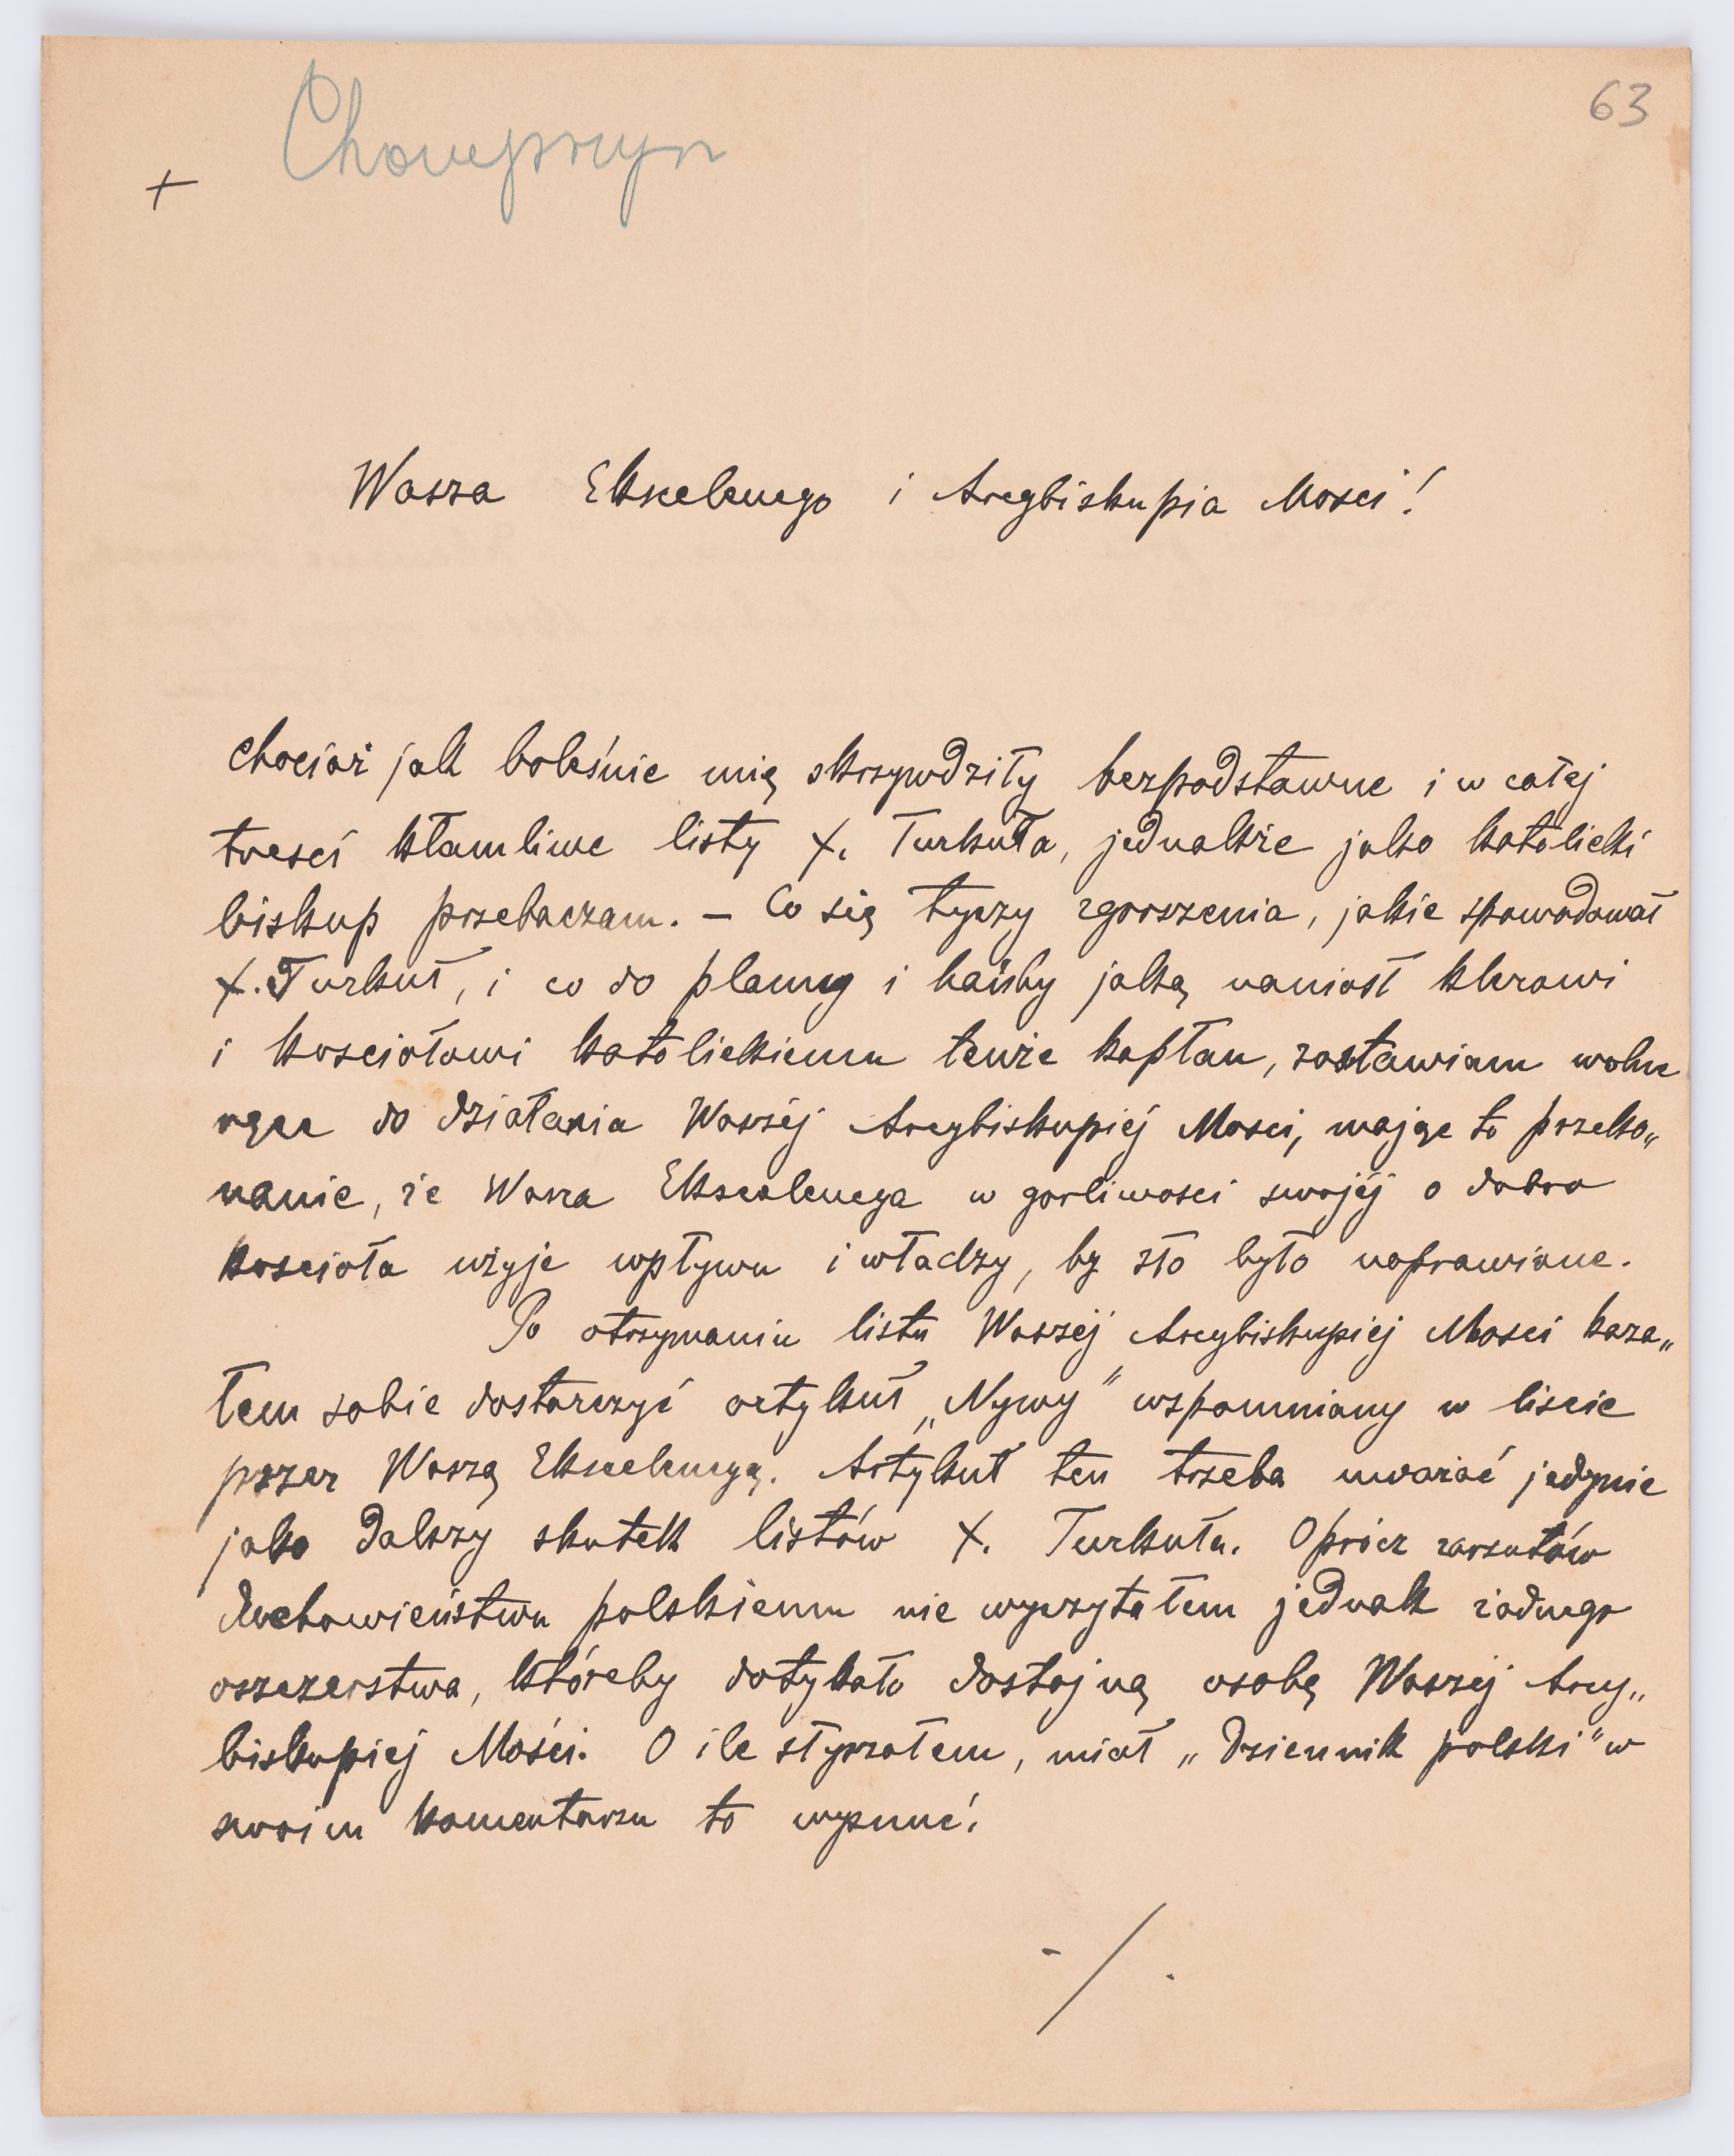 63
+
Wasza Ekscelencyo i Arcybiskupia Mosci!
Chociaż jak boleśnie mię skrzywdziły bezpodstawne i w całej
treści kłamliwe listy X. Turkuła, jednakże jako katolicki
biskup przebaczam. – Co się tyczy zgorszenia, jakie spowodował
X. Turkuł, i co do plamy i hańby jaką naniosł klerowi
i kosciołowi katolickiemu tenże kapłan, zostawiam wolne
ręce do działania Waszéj Arcybiskupiéj Mosci, mając to przeko„
nanie, że Wasza Ekscelencya w gorliwosci swojéj o dobro
koscioła użyje wpływu i władzy, by zło było naprawione.
Po otrzymaniu listu Waszéj Arcybiskupiej Mosci kaza„
łem sobie dostarczyć artykuł „Nywy" wspomniany w liscie
przez Waszą Ekscelencyą. Artykuł ten trzeba uważać jedynie
jako dalszy skutek listów X. Turkuła. Oprócz zarzutów
duchowieństwu polskiemu nie wyczytałem jednak żadnego
oszczerstwa, któreby dotykało dostojną osobę Waszéj Arcy„
biskupiej Mości. O ile słyszałem, miał „Dziennik polski" w
swoim komentarzu to wysnuć.
-/.